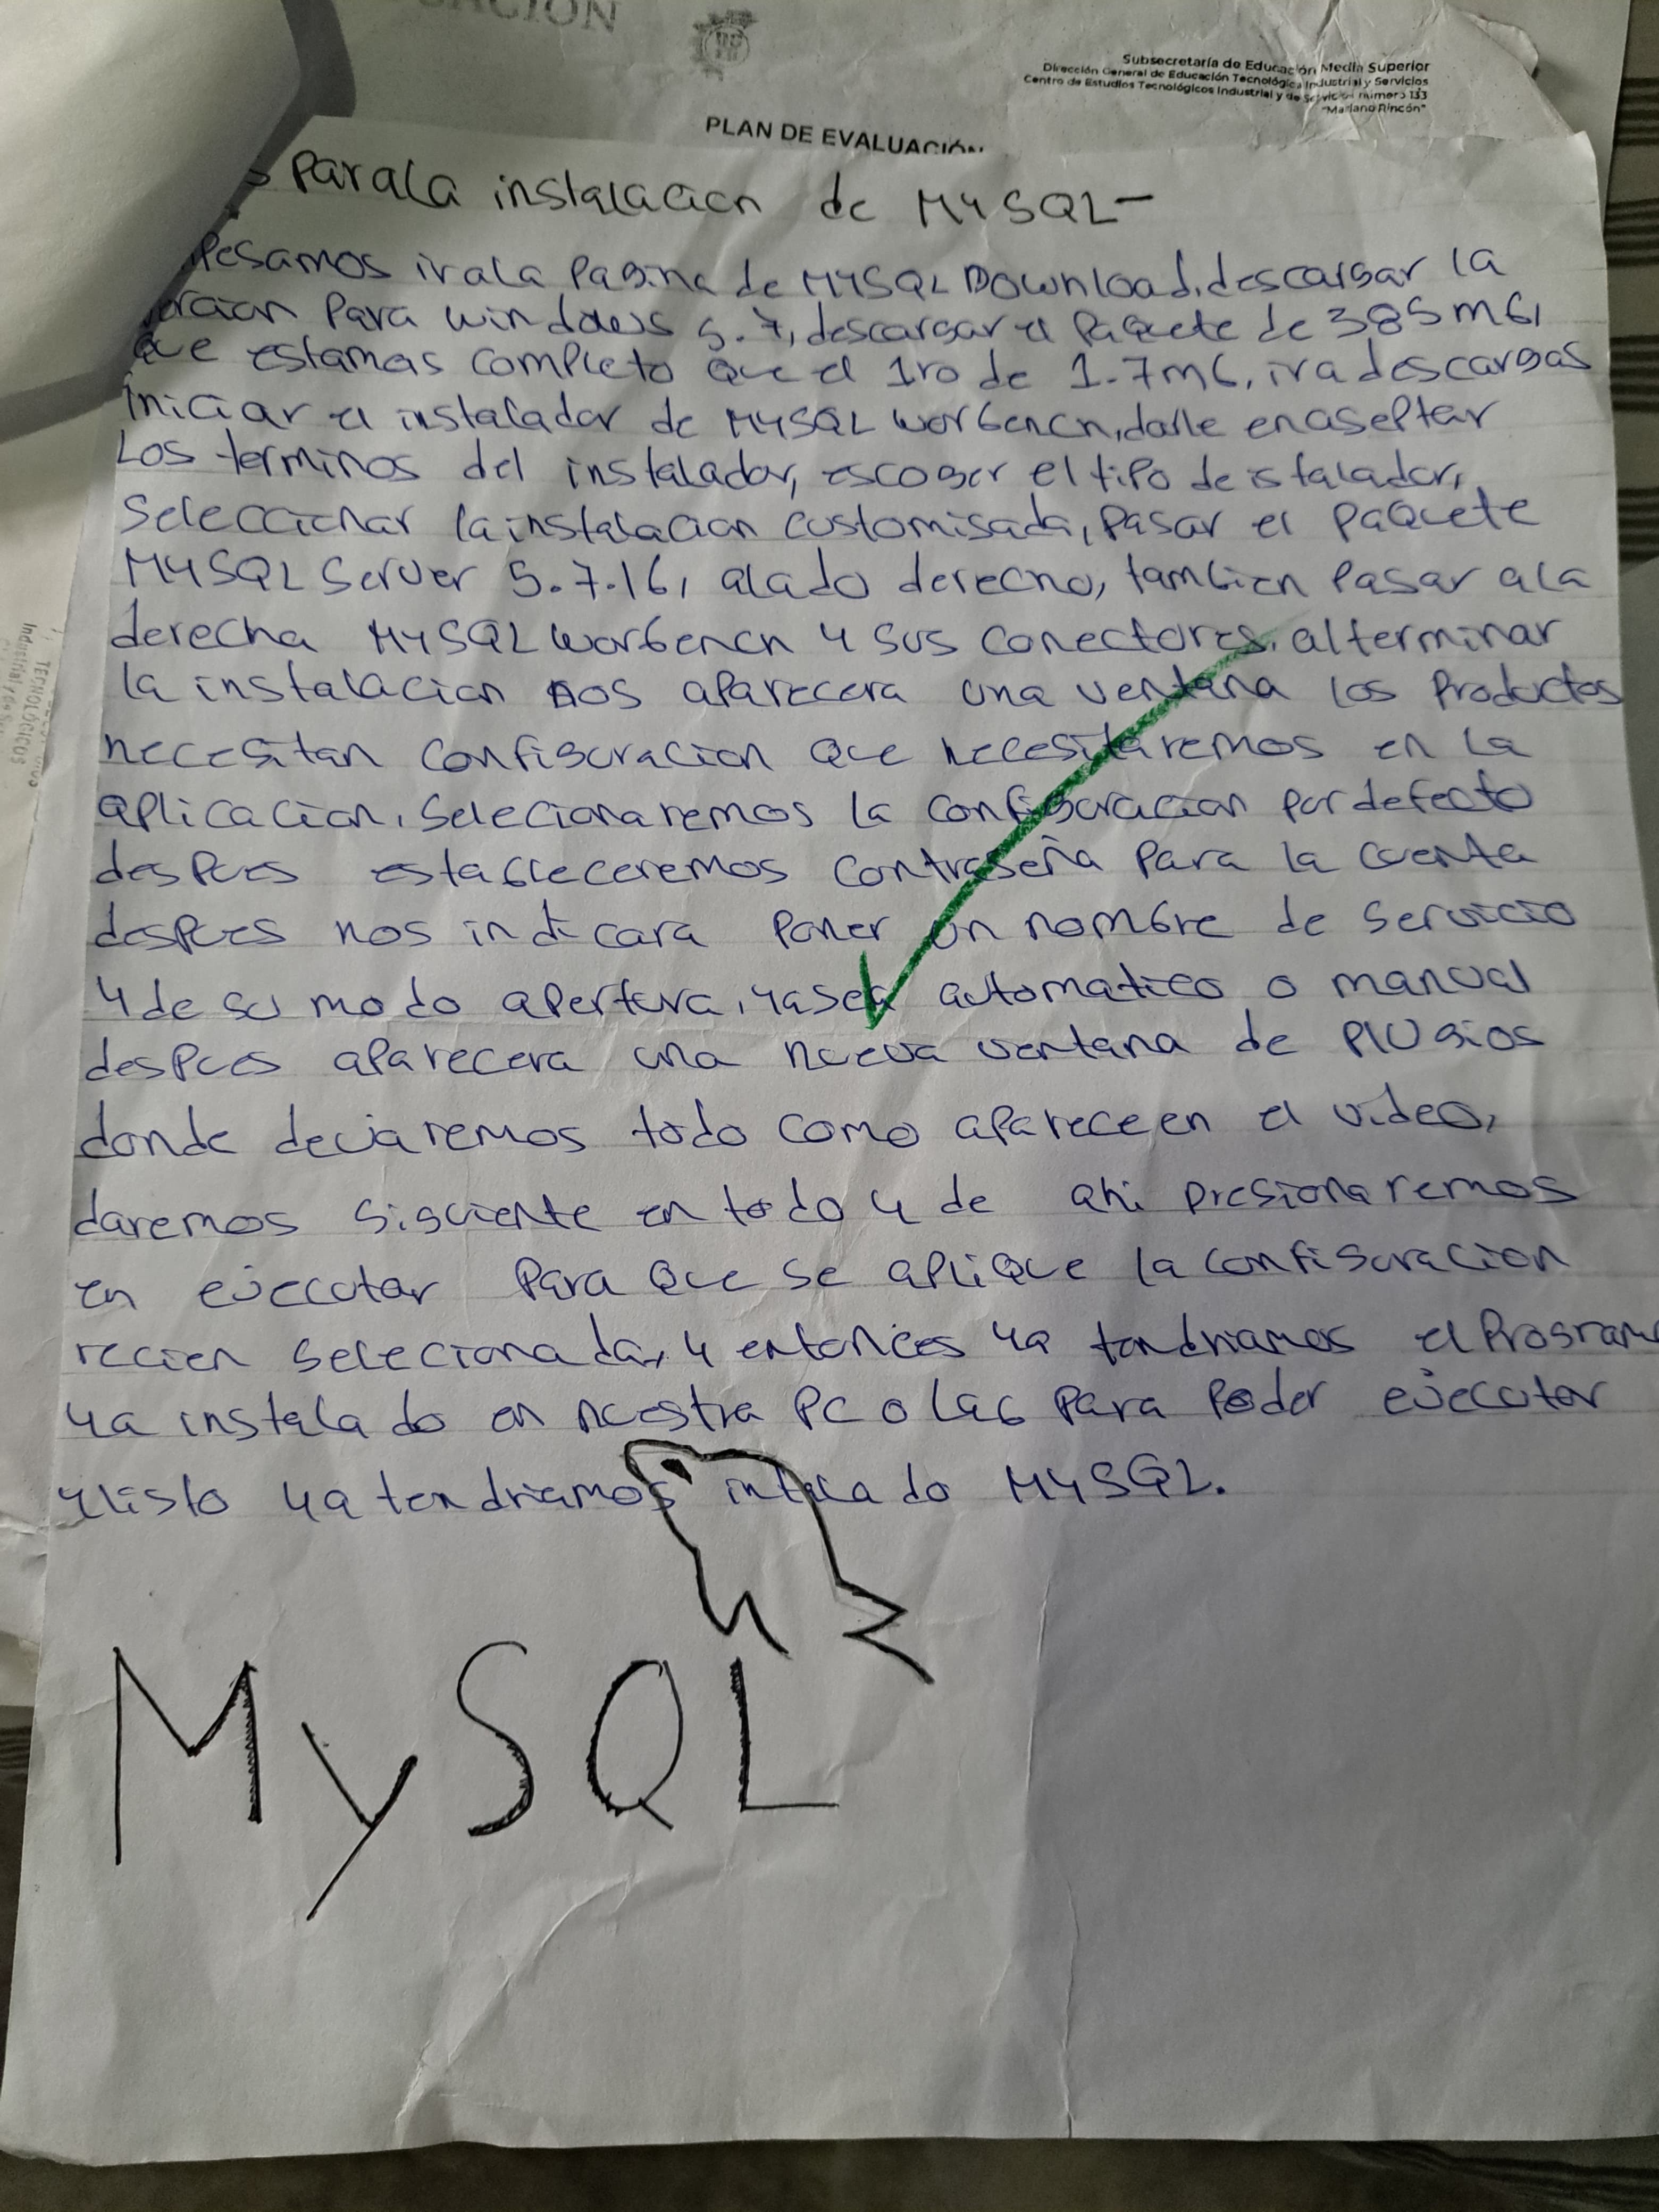 Subsecretaría de Educación Media Superior
Dirección General de Educación Tecnológica Industrial y Servicios
Centro de Estudios Tecnológicos Industrial y de Servicios número 133
"Mariano Rincón"
PLAN DE EVALUACIÓN
s Para la instalacion de MYSQL-
Pesamos ir a la Pagina de MYSQL Download, descargar la
Para windows 5.7, descargar el Paquete de 385 mb,
que estamas completo que el 1ro de 1.7mb, ir a descargas
iniciar el instalador de MYSQL worbench, darle en aseptar
Los terminos del instalador, escoger el tipo de istalador,
Seleccionar la instalacion customisada, Pasar el Paquete
MYSQL Server 5.7.16, alado derecho, tambien Pasar a la
derecha MYSQL worbench y sus conectores. al terminar
la instalacion nos aparecera una ventana los Productos
necesitan configuracion que necesitaremos en la
aplicacion, selecionaremos la configuracion por defecto
despues estableceremos contraseña Para la cuenta
despues nos indicara Poner un nombre de servicio
y de su modo apertura, ya sea automatico o manual
despues aparecera una nueva ventana de PlUgios
donde dejaremos todo como aparece en el video,
daremos siguiente en todo y de ahi Presionaremos
en ejecutar Para que se aplique la configuracion
recien selecionada, y entonces ya tendriamos el Program
ya instalado en nuestra PC o lab Para Poder ejecutar
y listo ya tendriamos intalado MYSQL.
MySQL